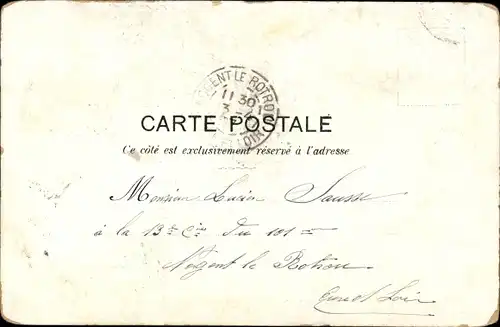 GENT LE ROTROU
11 30
3
LOIR
CARTE POSTALE
Ce côté est exclusivement réservé à l'adresse
Monsieur Lucien Sausse
à la 13e Cie du 101e
Nogent le Rotrou
Eure et Loir